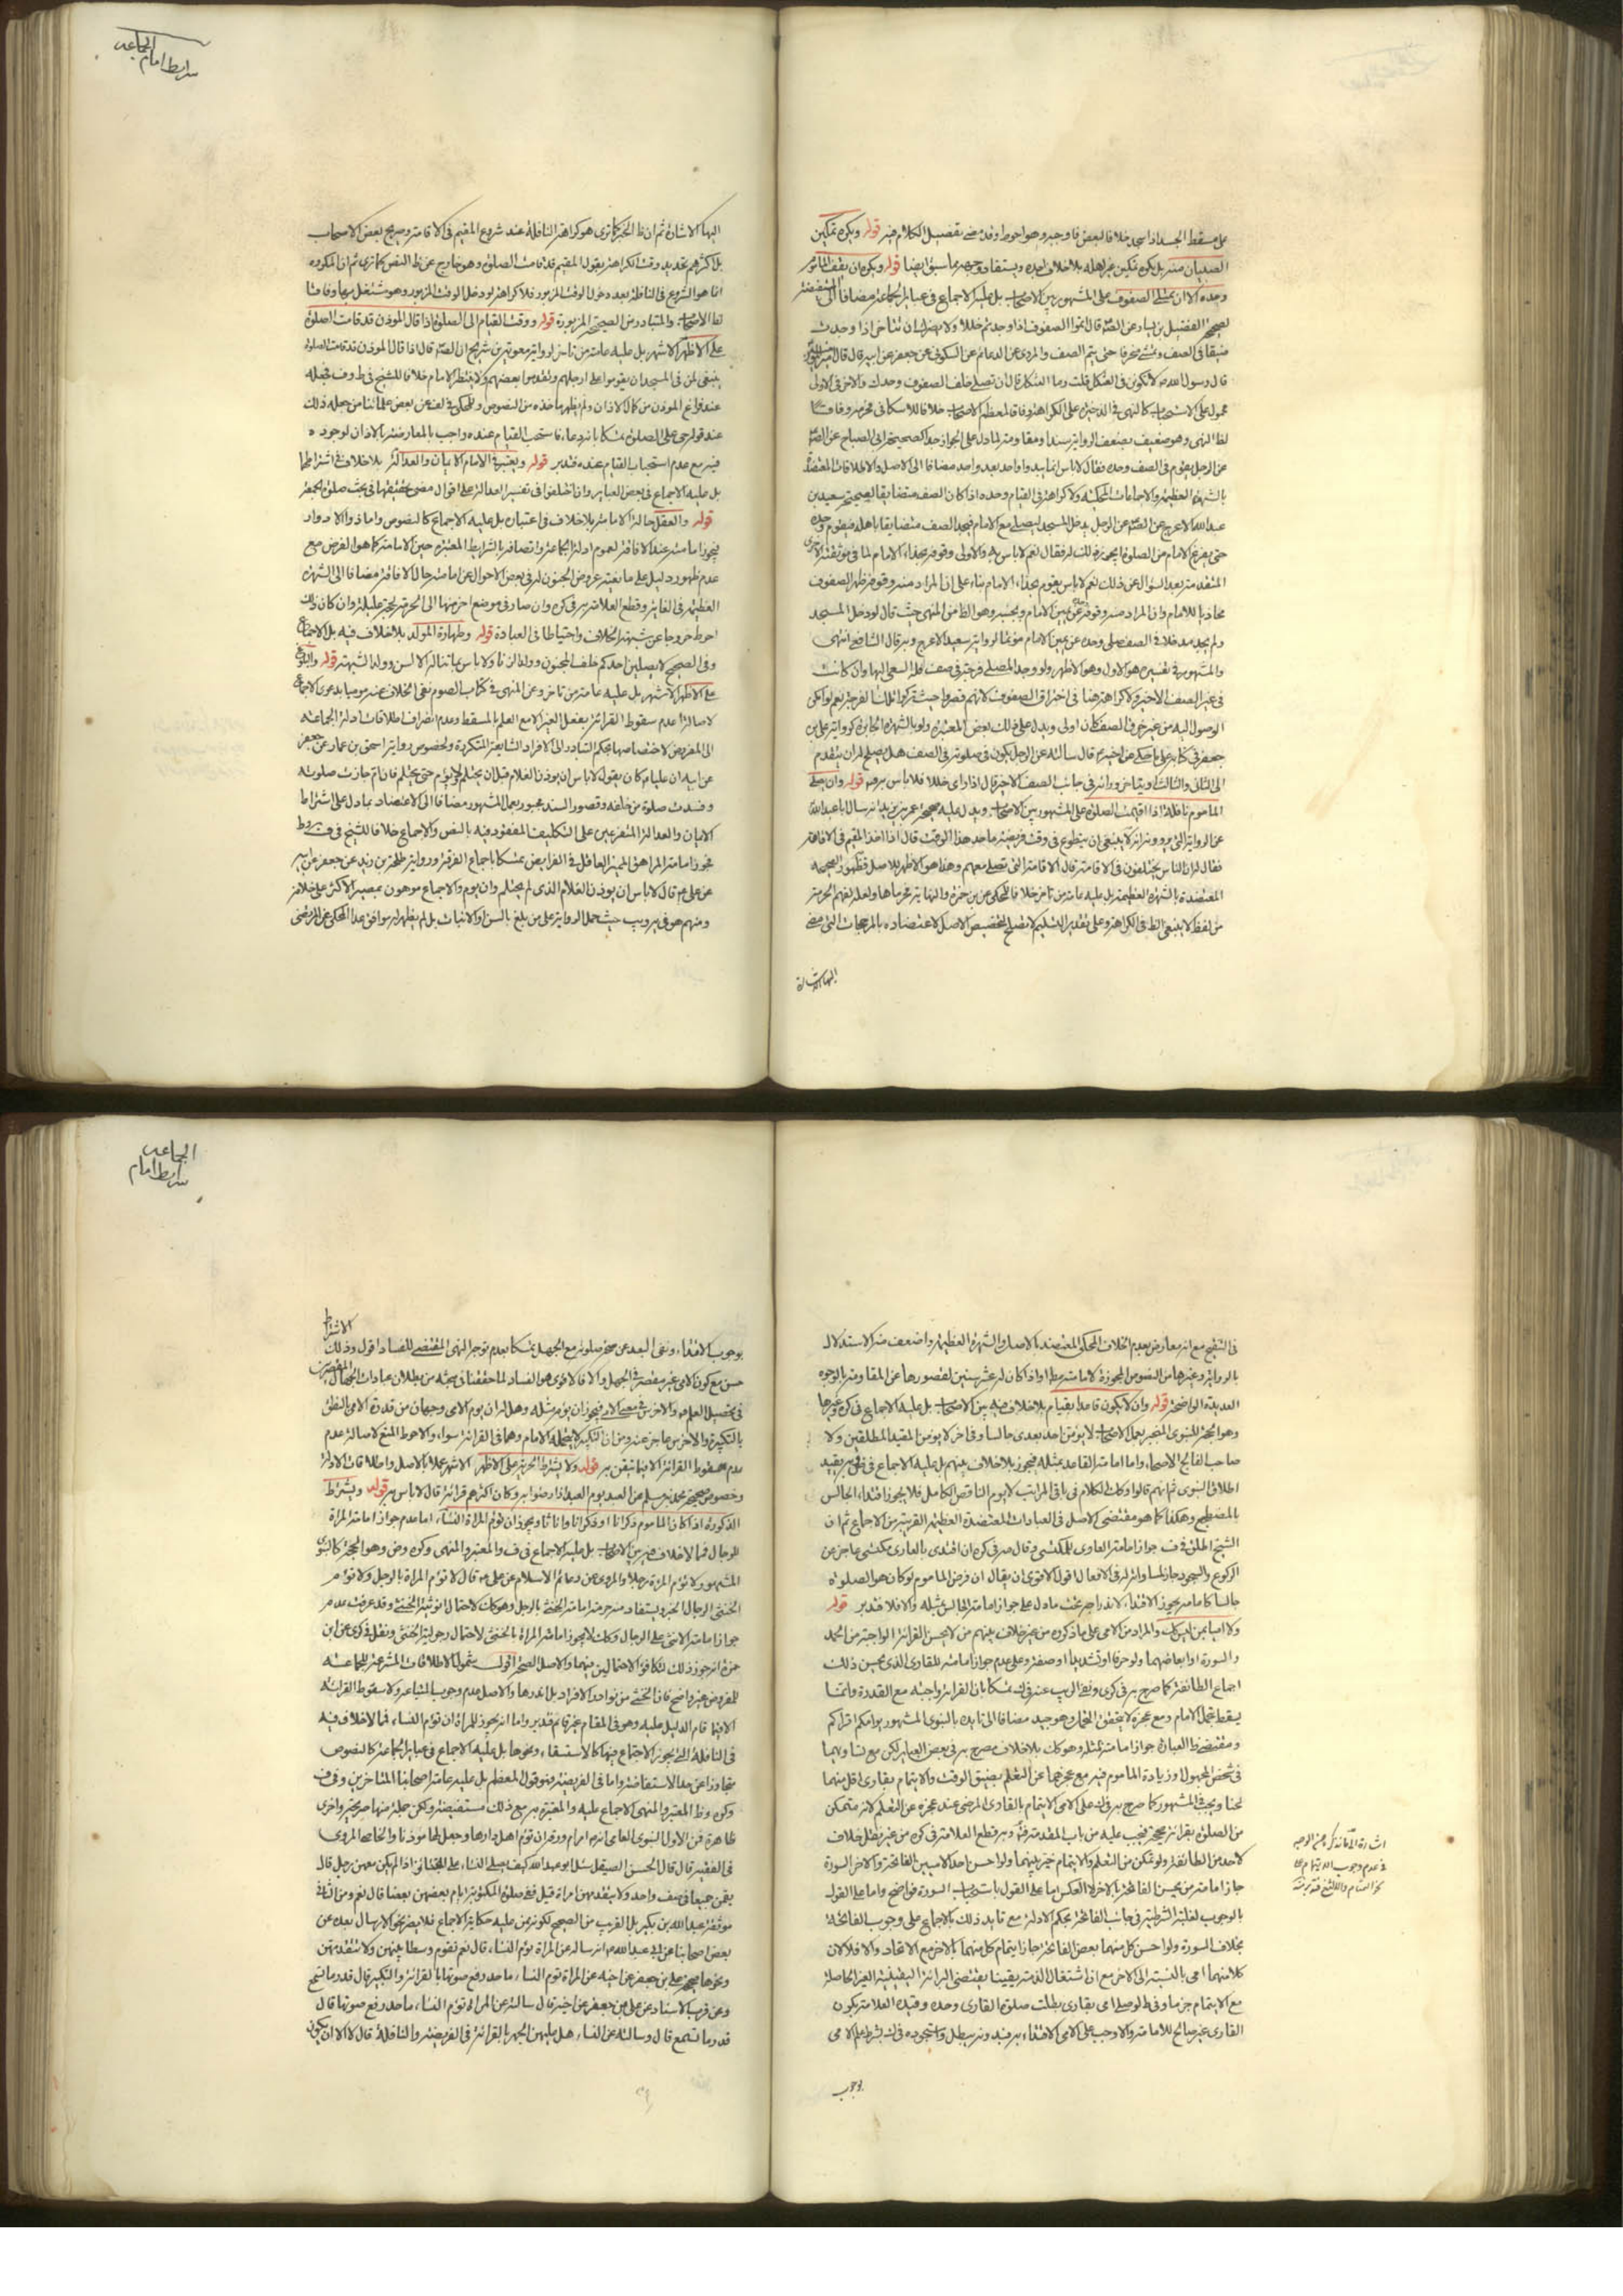 شرايط امام
الجماعه
على مسقط الجسد اذا سجد خلافا لبعض فاوجبه وهو احوط وقد مضى تفصيل الكلام فيه قوله ويكره تمكين
الصبيان منه بل يكره تمكين غير اهله بلا خلاف اجده ويستفاد وجهه مما سبق ايضا قوله ويكره ان يقف الماموم
وحده الا ان تمتلى الصفوف على المشهور بين الاصحاب بل عليه الاجماع فى عبائر الجماعة مضافا الى المستفيضة
لصحيح الفضيل بن يسار عن الصم قال اتموا الصفوف اذا وجدتم خللا ولا يضرك ان تتاخر اذا وجدت
ضيقا فى الصف وتمشى منحرفا حتى يتم الصف والمروى عن الدعائم عن السكونى عن جعفر عن ابيه قال قال
قال رسول الله ص لا تكونن فى العثكل قلت وما العثكل قال ان تصلى خلف الصفوف وحدك والامر فى الاولى
محمول على الاستحباب كالنهى فى الاخيرة على الكراهة وفاقا لمعظم الاصحاب خلافا للاسكافى فحرمه وفاقا
لظ النهى وهو ضعيف بضعف الرواية سندا ومقاومة لما دل على الجواز جدا كصحيحة ابى الصباح عن الصم
عن الرجل يقوم فى الصف وحده فقال لا باس انما يبدو واحد بعد واحد مضافا الى الاصل والاطلاقات المعتضدة
بالشهرة العظيمة والاجماعات المحكية ولا كراهة فى القيام وحده اذا كان الصف متضايقا لصحيح سعيد بن
عبد الله الاعرج عن الصم عن الرجل يدخل المسجد ليصلى مع الامام فيجد الصف متضايقا باهله فيقوم وحده
حتى يفرغ الامام من الصلوة ايجوز ذلك له فقال نعم لا باس به والاولى وقوفه بحذاء الامام لما فى موثقته الاخرى
المتقدمة بعد السؤال عن ذلك نعم لا باس يقوم بحذاء الامام بناء على ان المراد منه وقوفه ظهر الصفوف
محاذيا للامام وان المراد منه وقوفه عن يمين الامام وبجنبه وهو الظ من المنهى حيث قال لو دخل المسجد
ولم يجد مدخلا فى الصف صلى وحده عن يمين الامام مؤتما لرواية سعيد الاعرج وبه قال الشافعى انتهى
والمشهور فى تفسيره هو الاول وهو الاظهر ولو وجد المصلى فرجة فى صف فله السعى اليها وان كانت
فى غير الصف الاخير ولا كراهة هنا فى اختراق الصفوف لانهم قصروا حيث تركوا تلك الفرجة نعم لو امكن
الوصول اليه من غير خرق الصف كان اولى ويدل على ذلك بعض المعتبرة ولو بالشهرة الجابرة كرواية على بن
جعفر فى كتابه على ما حكى عن اخيه م قال سالته عن الرجل يكون فى صلوته فى الصف هل يصلح له ان يتقدم
الى الثانى والثالث او يتاخر وراءه فى جانب الصف الاخر قال اذا راى خللا فلا باس به وم قوله وان يصلى
الماموم نافلة اذا اقيمت الصلوة على المشهور بين الاصحاب ويدل عليه صحيح عمر بن يزيد انه سال ابا عبد الله
عن الرواية التى يروون انه لا ينبغى ان يتطوع فى وقت فريضة ما حد هذا الوقت قال اذا اخذ المقيم فى الاقامة
فقال له ان الناس يختلفون فى الاقامة قال الاقامة التى تصلى معهم وهذا هو الاظهر للاصل فظهور الصحيحة
المعتضدة بالشهرة العظيمة بل عليه عامة من تاخر خلافا للمحكى عن بن حمزة والنهاية فحرماها ولعله لفهم الحرمة
من لفظ لا ينبغى الظ فى الكراهة وعلى تقدير التسليم لا تصلح لتخصيص الاصل لاعتضاده بالمرجحات التى مضى
اليها الاشارة
اليها الاشارة ثم ان ظ الخبر كما ترى هو كراهة النافلة عند شروع المقيم فى الاقامة وصريح بعض الاصحاب
بل اكثرهم تحديد وقت الكراهة بقول المقيم قد قامت الصلوة وهو خارج عن ظ النص كما ترى ثم ان المكروه
انما هو الشروع فى النافلة بعد دخول الوقت المزبور فلا كراهة لو دخل الوقت المزبور وهو مشتغل بها وفاقا
لظ الاصحاب والمتبادر من الصحيحة المزبورة قوله ووقت القيام الى الصلوة اذا قال الموذن قد قامت الصلوة
على الاظهر الاشهر بل عليه عامة من تاخر لرواية معوية بن شريح ان الصم قال اذا قال الموذن قد قامت الصلوة
ينبغى لمن فى المسجد ان يقوموا على ارجلهم ويقدموا بعضهم ولا ينتظر الامام خلافا للشيخ فى ط وف فجعله
عند فراغ الموذن من كمال الاذان ولم يظهر ماخذه من النصوص وللمحكى فى لف عن بعض علمائنا من جعله ذلك
عند قوله حى على الصلوة تمسكا بانه دعاء فاستحب القيام عنده واجيب بالمعارضة بالاذان لوجوده
فيه مع عدم استحباب القيام عنده فتدبر قوله ويعتبر فى الامام الايمان والعدالة بلا خلاف فى اشتراطهما
بل عليه الاجماع فى بعض العباير وان اختلفوا فى تفسير العدالة على اقوال مضى تحقيقها فى بحث صلوة الجمعة
قوله والعقل حالة الامامة بلا خلاف فى اعتباره بل عليه الاجماع كالنصوص واما ذو الادوار
فيجوز امامته عند الافاقة لعموم ادلة الجماعة واتصافه بالشرايط المعتبرة حين الامامة كما هو الفرض مع
عدم ظهور دليل على مانعية عروض الجنون له فى بعض الاحوال عن امامته حال الافاقة مضافا الى الشهرة
العظيمة فى الغاية وقطع العلامة به فى كره وان صار فى موضع اخر منها الى الحرمة لحجة عليلة وان كان ذلك
احوط خروجا عن شبهة الخلاف واحتياطا فى العبادة قوله وطهارة المولد بلا خلاف فيه بل الاجماع
وفى الصحيح لا يصلين احدكم خلف المجنون وولد الزنا ولا باس بما تناله الالسن وولد الشبهة قوله والبلوغ
على الاظهر الاشهر بل عليه عامة من تاخر وعن المنهى فى كتاب الصوم نفى الخلاف عنه مرميا بدعوى الاجماع
لاصالة عدم سقوط القرائة بفعل الغير الا مع العلم بالمسقط وعدم انصراف اطلاقات ادلة الجماعة
الى المفروض لاختصاصها بحكم التبادر الى الافراد الشايعة المتكررة ولخصوص رواية اسحق بن عمار عن جعفر
عن ابيه ان عليا م كان يقول لا باس ان يوذن الغلام قبل ان يحتلم ولا يؤم حتى يحتلم فان ام جازت صلوته
وفسدت صلوة من خلفه وقصور السند مجبور بعمل المشهور مضافا الى الاعتضاد بما دل على اشتراط
الايمان والعدالة المتفرعين على التكليف المفقود فيه بالنص والاجماع خلافا للشيخ فى ف وط
فجوز امامة المراهق المميز العاقل فى الفرايض تمسكا باجماع الفرقة ورواية طلحة بن زيد عن جعفر عن ابيه
عن على م قال لا باس ان يوذن الغلام الذى لم يحتلم وان يوم والاجماع موهون بمصير الاكثر على خلافه
ومنهم هو فى يه ويب حيث حمل الرواية على من بلغ بالسن او الانبات بل لم يظهر له موافق عدا المحكى عن المرتضى
الجماعه
شرايط امام
فى التنقيح مع انه معارض بعدم الخلاف المحكى المعتضد بالاصل والشهرة العظيمة واضعف منه الاستدلال
بالرواية وغيرها من النصوص المجوزة لامامته مط او اذا كان له عشر سنين لقصورها عن المقاومة بالوجوه
العديدة الواضحة قوله وان لا يكون قاعدا بقيام بلا خلاف فيه بين الاصحاب بل عليه الاجماع فى كره وغيرها
وهو الحجة للنبوى المنجبر بعمل الاصحاب لا يؤمن احد بعدى جالسا وفى اخر لا يؤمن المقيد المطلقين ولا
صاحب الفالج الاصحاء واما امامة القاعد بمثله فيجوز بلا خلاف بينهم بل عليه الاجماع فى وبه يقيد
اطلاق النبوى ثم انهم قالوا وكك الكلام فى باقى المراتب لا يوم الناقص الكامل فلا يجوز اقتداء الجالس
بالمضطجع وهكذا كما هو مقتضى الاصل فى العبادات المعتضدة العظيمة القريبة من الاجماع ثم ان
الشيخ اطلق فى ف جواز امامة العارى للمكتسى وقال صه فى كره ان اقتدى بالعارى مكتسى عاجز عن
الركوع والسجود جاز لمساواته له فى الافعال اقول الاقوى ان يقال ان فرض الماموم لو كان هو الصلوة
جالسا كامامه يجوز الاقتداء لاندراجه تحت ما دل على جواز امامة الجالس بمثله والا فلا فتدبر قوله
ولا اميا بمن ليس كك والمراد من الامى على ما ذكروه من غير خلاف بينهم من لا يحسن القرائة الواجبة من الحمد
والسورة او ابعاضهما ولو حرفا او تشديدا او صفة وعلى عدم جواز امامته للقارى الذى يحسن ذلك
اجماع الطائفة كما صرح به فى كرى ونفى الريب عنه فى ك تمسكا بان القرائة واجبة مع القدرة وانما
يسقط بتحمل الامام ومع عجزه لا يتحقق التحمل وهو جيد مضافا الى تايده بالنبوى المشهور يؤمكم اقراكم
ومقتضى ظ العبارة جواز امامته لمثله وهو كك بلا خلاف مصرح به فى بعض العباير لكن مع تساويهما
فى شخص المجهول او زيادة الماموم فيه مع عجزهما عن التعلم بضيق الوقت والايتمام بقارى اقل منهما
لحنا ويجب فى المشهور كما صرح به فى ك على الامى الايتمام بالقارى المرضى عند عجزه عن التعلم لانه متمكن
من الصلوة بقرائة صحيحة فيجب عليه من باب المقدمة وبه قطع العلامة فى كره من غير نقل خلاف
لاحد من الطائفة ولو تمكن من التعلم والايتمام تخير بينهما ولو احسن احد الاميين الفاتحة والاخر السورة
جاز امامة من يحسن الفاتحة بالاخر لا العكس اما على القول باستحباب السورة فواضح واما على القول
بالوجوب لغلبة الشرطية فى جانب الفاتحة بحكم الادلة مع تايد ذلك بالاجماع على وجوب الفاتحة
بخلاف السورة ولو احسن كل منهما بعض الفاتحة جاز ايتمام كل منهما بالاخر مع الاتحاد والا فلا لان
كلا منهما امى بالنسبة الى الاخر مع ان اشتغال الذمة يقينا يقتضى البرائة اليقينية الغير الحاصلة
مع الايتمام جزما وفى ط لو صلى امى بقارى بطلت صلوة القارى وحده وقيده العلامة بكون
القارى غير صالح للامامة والا وجب على الامى الاقتداء به فبدونه يبطل واستجوده فى ك بشرط علم الامى
بوجوب
اشارة الى انه ذكر بعض الوجه
فى عدم وجوب الايتمام
الاشتراط
بوجوب الاقتداء ونفى البعد عن صحة صلوته مع الجهل تمسكا بعدم توجه النهى المقتضى للفساد اقول وذلك
حسن مع كون الامى غير مقصر فى الجهل والا فالاقوى هو الفساد لما حققنا فى محله من بطلان عبادات الجهال المقصرين
فى تحصيل العلم والاخرس فى معنى الامى فيجوز ان يؤم مثله وهل له ان يوم الامى وجهان من قدرة الامى النطق
بالتكبيرة والاخرس عاجز عنه ومن ان التكبير لا يتحمله الامام وهما فى القرائة سواء والاحوط المنع لاصالة عدم
عدم سقوط القرائة الا فيما تيقن به قوله ولا يشترط الحرية على الاظهر الاشهر عملا بالاصل واطلاقات الادلة
وخصوص صحيحة محمد بن مسلم عن العبد يوم العبد اذا رضوا به وكان اكثرهم قرائة قال لا باس به قوله ويشترط
الذكورة اذا كان الماموم ذكرانا او ذكرانا واناثا ويجوز ان تؤم المراة النساء اما عدم جواز امامة المراة
للرجال فمما لا خلاف فيه بين الاصحاب بل عليه الاجماع فى ف والمعتبر والمنهى وكره وض وهو الحجة كالنبوى
المشهور ولا تؤم المراة رجلا والمروى عن دعائم الاسلام عن على م قال لا تؤم المراة بالرجل ولا تؤم
الخنثى الرجال الخبر ويستفاد منه حرمة امامة الخنثى بالرجل وهو كك لاحتمال انوثية الخنثى وقد عرفت عدم
جواز امامة الانثى على الرجال وكك لا يجوز امامة المراة بالخنثى لاحتمال رجولية الخنثى ونقل فى كرى عن ابن
حمزة انه جوز ذلك لتكافؤ الاحتمالين فيهما والاصل الصحة اقول شمول الاطلاقات المشرعة للجماعة
للمفروض غير واضح فان الخنثى من نوادر الافراد بل اندرها والاصل عدم وجوب المتابعة ولا سقوط القرائة
الا فيما قام الدليل عليه وهو فى المقام غير قائم فتدبر واما انه يجوز للمراة ان تؤم النساء فما لا خلاف فيه
فى النافلة التى يجوز الاجتماع فيها كالاستسقاء ونحوها بل عليه الاجماع فى عباير الجماعة كالنصوص
متجاوزا عن حد الاستفاضة واما فى الفريضة فهو قول المعظم بل عليه عامة اصحابنا المتاخرين وفى ف
وكره وظ المعتبر والمنهى الاجماع عليه والمعتبرة به مع ذلك مستفيضة ولكن جملة منها صريحة واخرى
ظاهرة فمن الاول النبوى العامى انه م امر ام ورقة ان تؤم اهل دارها وجعل لها موذنا والخاصى المروى
فى الفقيه قال قال الحسن الصيقل سئل ابو عبد الله كيف يصلى النساء على الجنائز اذا لم يكن معهن رجل قال
يقمن جميعا فى صف واحد ولا يتقدمهن امراة قيل ففى صلوة المكتوبة ايؤم بعضهن بعضا قال نعم ومن الثانى
موثقة عبد الله بن بكير بل القريب من الصحيح لكونه ممن عليه حكاية الاجماع فلا يضر نحو الارسال بعده عن
بعض اصحابنا عن ابى عبد الله م انه ساله عن المراة تؤم النساء قال نعم تقوم وسطا بينهن ولا تتقدمهن
ونحوها صحيح على بن جعفر عن اخيه عن المراة تؤم النساء ما حد رفع صوتها بالقرائة والتكبير قال قدر ما تسمع
وعن قرب الاسناد عن على بن جعفر عن اخيه قال سالته عن المراة تؤم النساء ما حد رفع صوتها قال
قدر ما تسمع قال وسالته عن النساء هل عليهن الجهر بالقرائة فى الفريضة والنافلة قال لا الا ان يكون